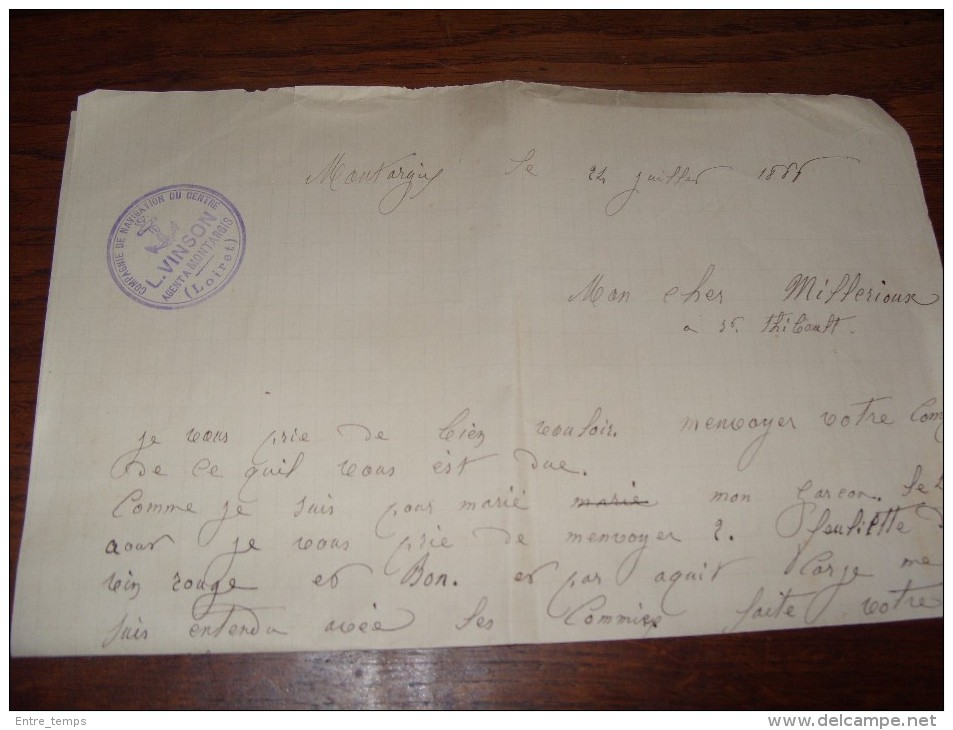 Montargis le 24 juillet 188
COMPAGNIE DE NAVIGATION DU CENTRE
L. VINSON
AGENT A MONTARGIS
(Loiret)
Mon cher Millerioux
a st. thibault.
je vous prie de bien vouloir. menvoyer votre Com
de ce quil vous est due.
Comme je suis pour marié marié mon garcon. le
aout je vous prie de menvoyer 2. feuliette
vin rouge et Bon. et par aquit
suis entendu avec les Commiee faite votre
Entre_temps
www.delcampe.net